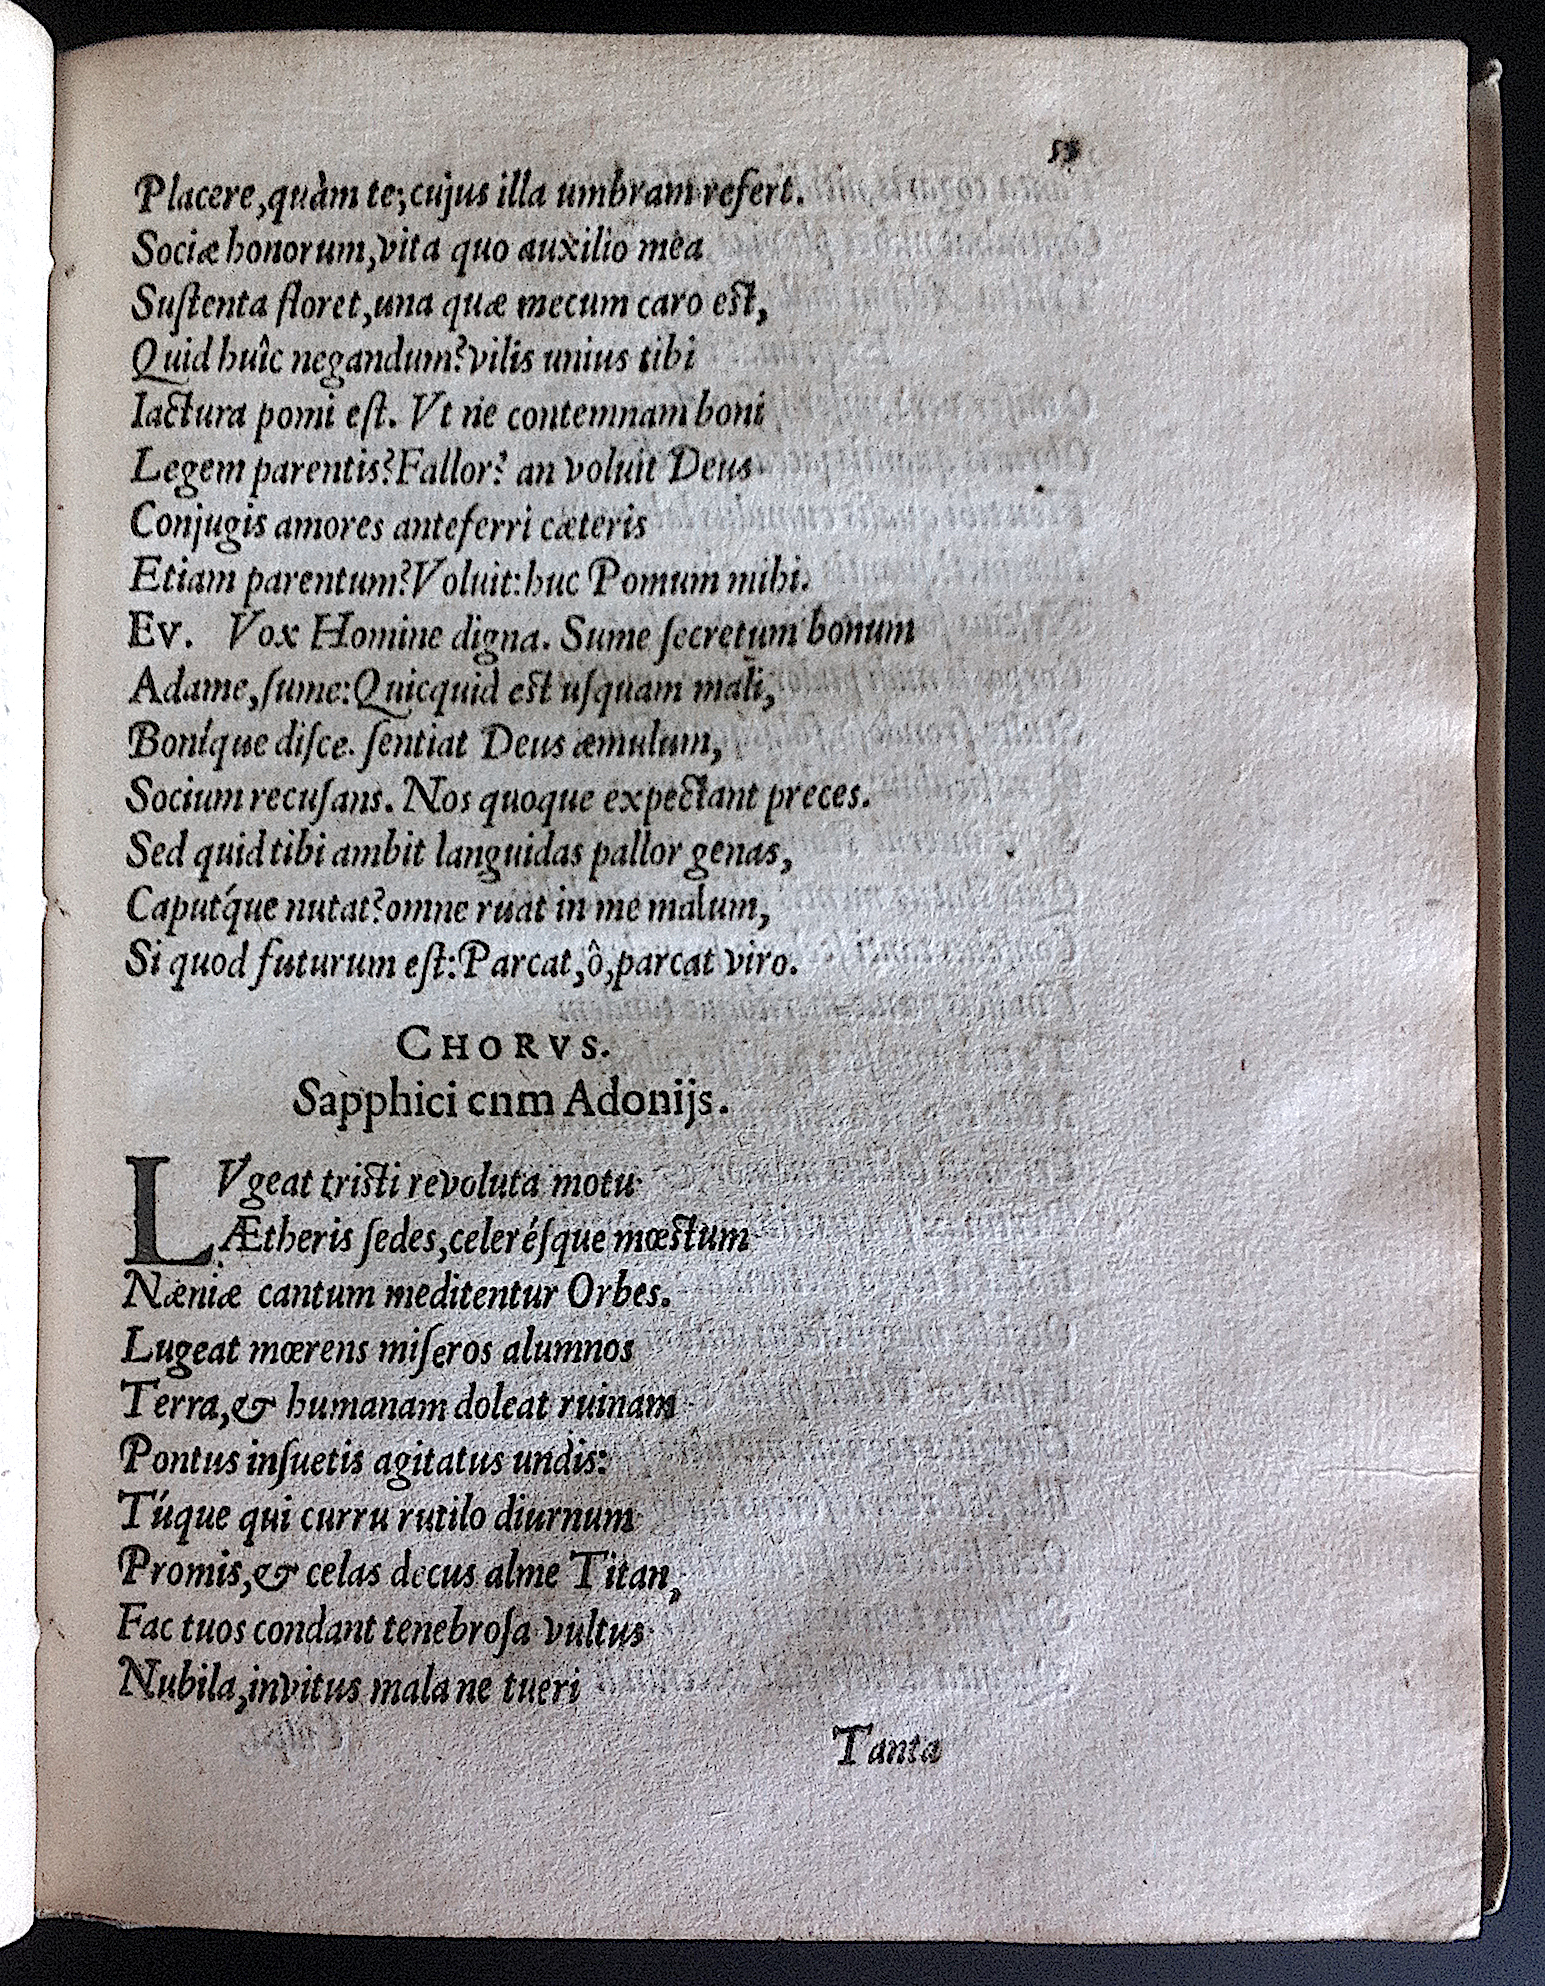 Placere,quàm te;cujus illa umbram refert.
Sociæ honorum,vita quo auxilio mea
Suſtenta floret,una quæ mecum caro eſt,
Quid huîc negandum?vilis unius tibi
Iactura pomi eſt. Vt ne contemnam boni
Legem parentis?Fallor? an voluit Deus
Conjugis amores anteferri cæteris
Etiam parentum?Voluit:huc Pomum mihi.
Ev. Vox Homine digna. Sume ſecretum bonum
Adame,ſume:Quicquid eſt uſquam mali,
Boníque diſce. ſentiat Deus æmulum,
Socium recuſans. Nos quoque expectant preces.
Sed quid tibi ambit languidas pallor genas,
Capút́que nutat?omne ruat in me malum,
Si quod futurum eſt:Parcat,ô,parcat viro.
CHORVS.
Sapphici cnm Adonijs.
LVgeat triſti revoluta motu
Ætheris ſedes,celeréſque mœſtum
Næniæ cantum meditentur Orbes.
Lugeat mœrens miſeros alumnos
Terra,& humanam doleat ruinam
Pontus inſuetis agitatus undis:
Túque qui curru rutilo diurnum
Promis,& celas decus alme Titan,
Fac tuos condant tenebroſa vultus
Nubila,invitus mala ne tueri
Tanta